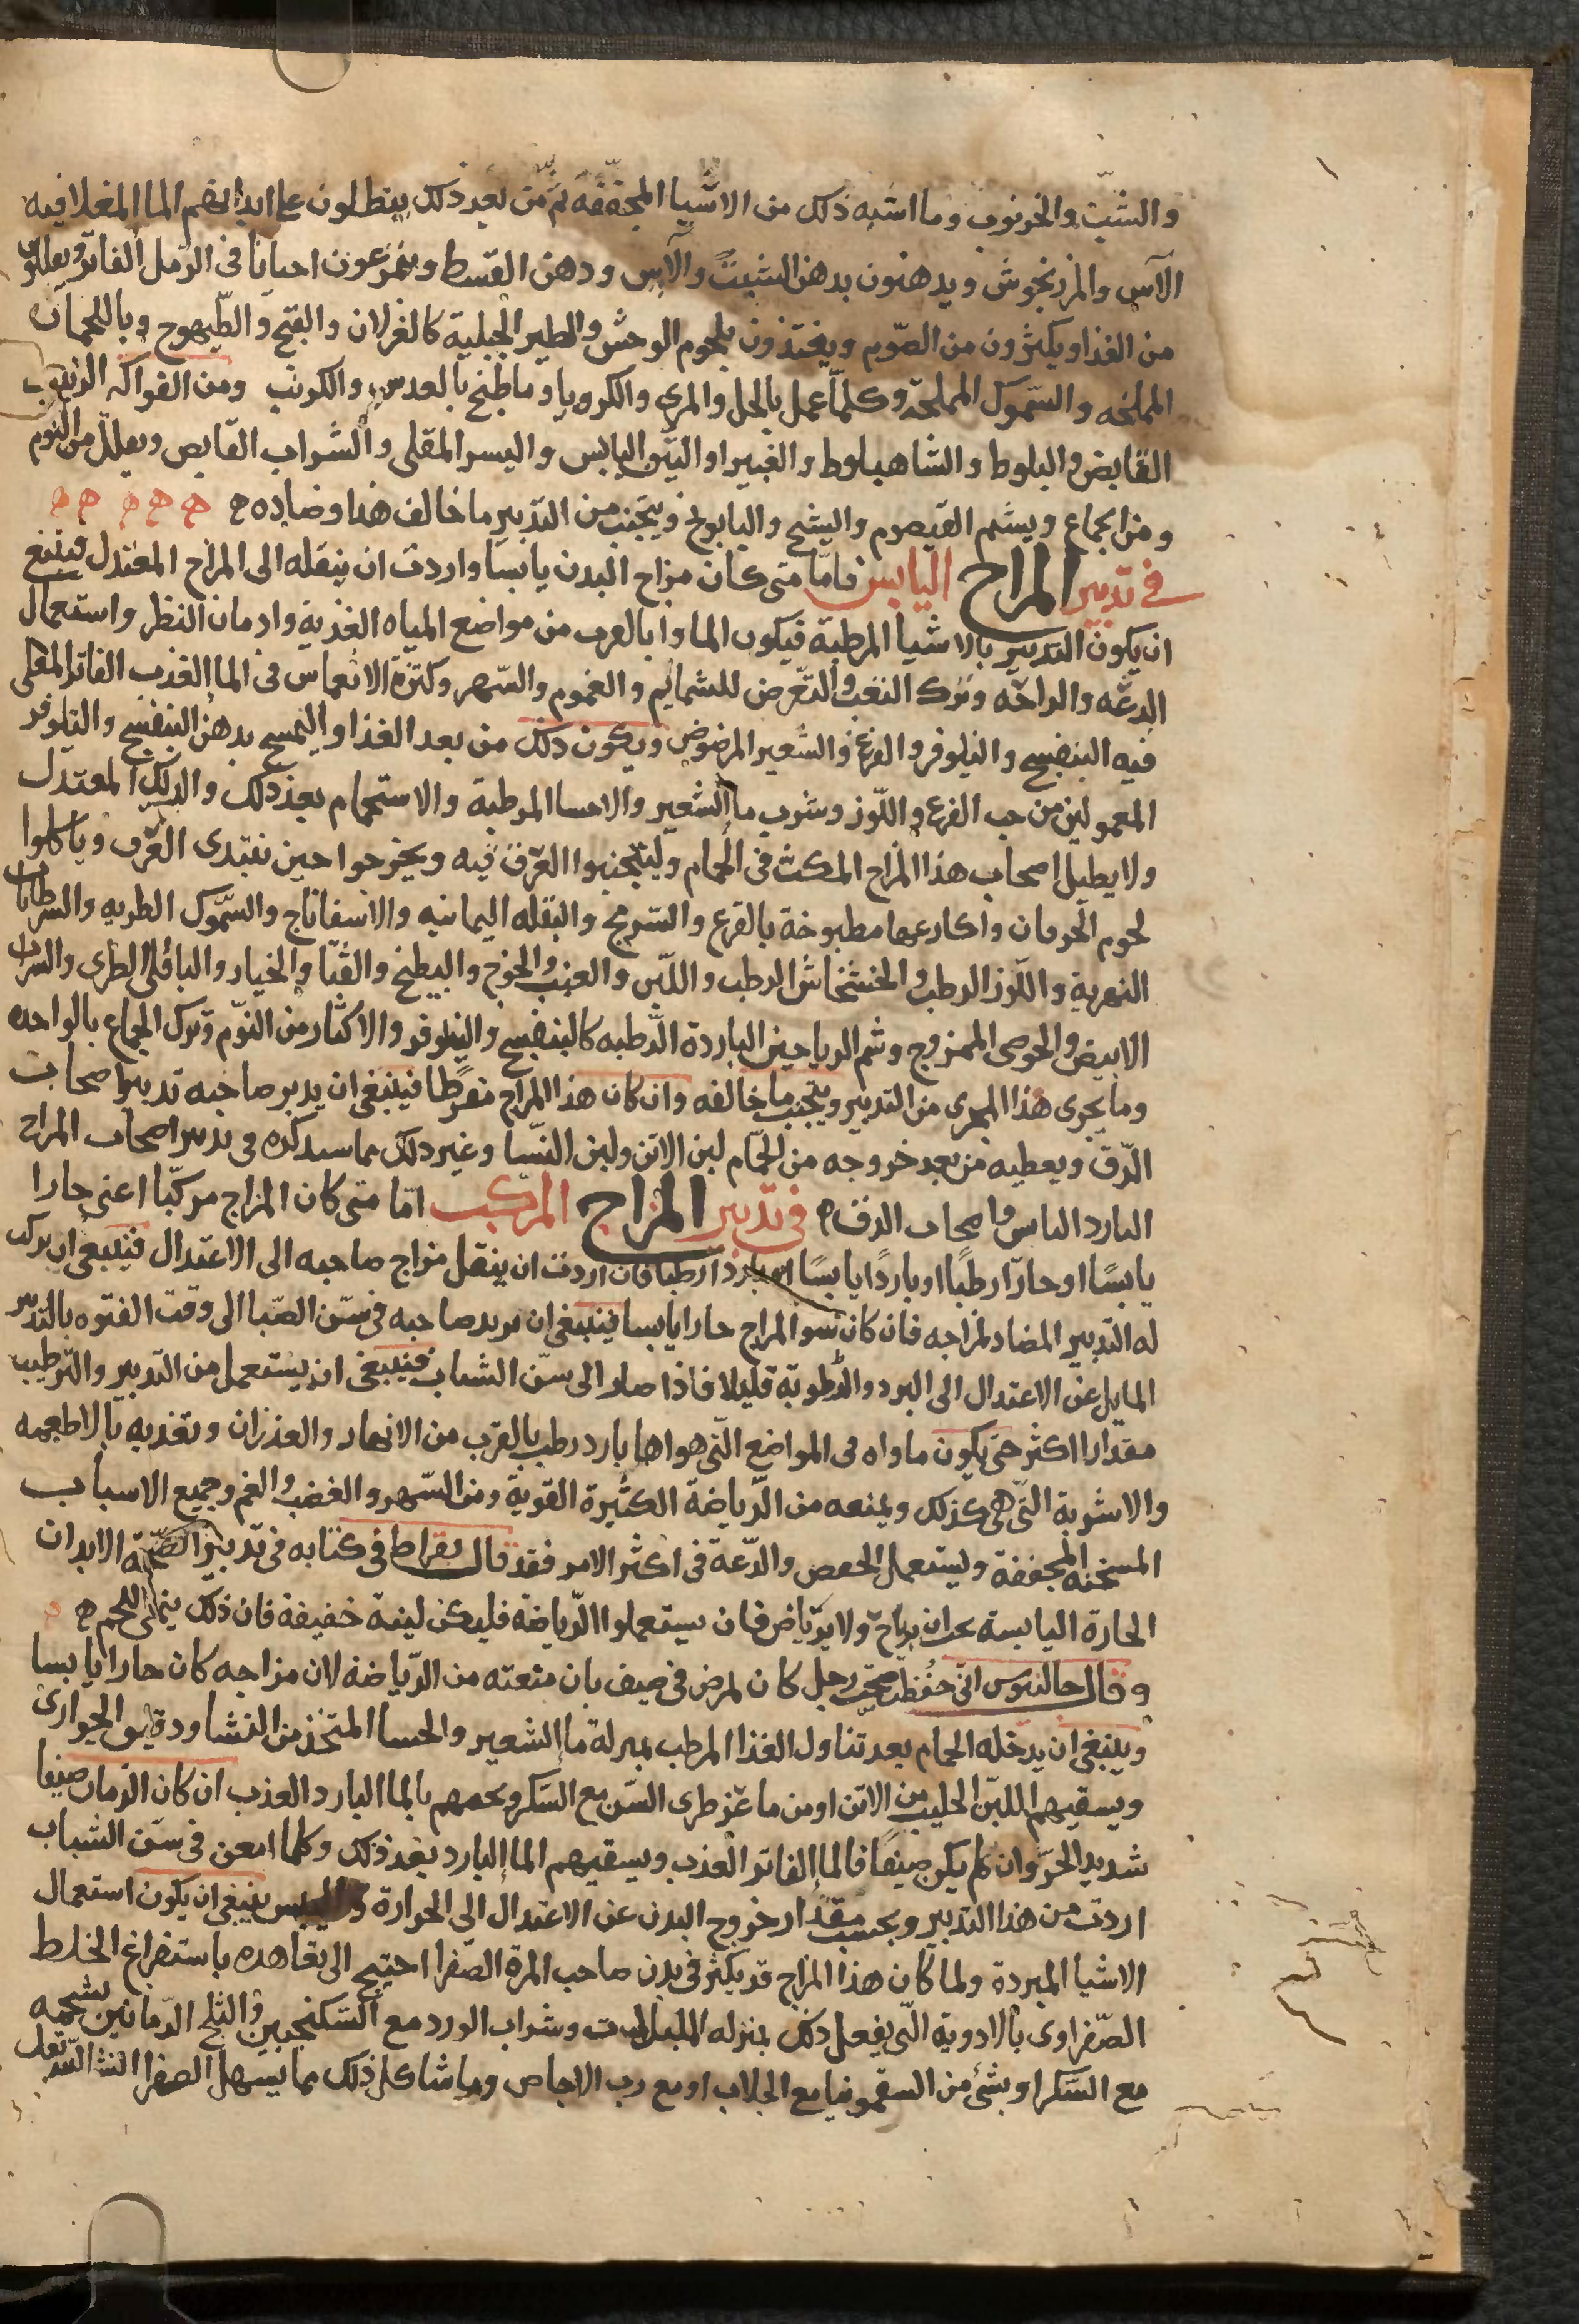 والشبّ والخرنوب وما اشبه ذلك من الاشيا المجففه ثم من بعد ذلك ينطلون على ابدانهم الما المغلا فيه
الآس والمرزنجوش ويدهنون بدهن الشبت والآس ودهن القسط ويتمرغون احيانا في الرمل الفاتر ويقللون
من الغذا ويكثرون من الصّوم ويغتذون بلحوم الوحش والطير الجبلية كالغزلان والقبج والطّيهوج وباللحمان
المملحه والسّموك المملحة وكلّما عمل بالخل والمري والكرويا وما طبخ بالعدس والكرنب ومن الفواكه الزعرور
القابض والبلوط والشاهبلوط والغبيرا والتّين اليابس والبسر المقلى والشّراب القابض ويقلل من النوم
ومن الجماع ويشم القيصوم والشيح والبابونج ويتجنب من التدبير ما خالف هذا وضاده ه ه ه ه ه ه
في تدبير المزاج اليابس فامّا متى كان مزاج البدن يابسا واردت ان ينقله الى المزاج المعتدل فينبغي
ان يكون التدبير بالاشيا المرطبة فيكون الماوا بالقرب من مواضع المياه العذبة وادمان النظر واستعمال
الدعّه والراحه وترك التعب والتعّرض للسمايم والغموم والسّهر وكثرة الانغماس في الما العذب الفاتر المغلى
فيه البنفسج والنيلوفر والقرع والشعير المرضوض ويكون ذلك من بعد الغذا والتمسح بدهن البنفسج والنيلوفر
المعمولين من حب القرع واللّوز وشرب ما الشعير والاحسا المرطبة والاستحمام بعد ذلك والدلك المعتدل
ولا يطيل اصحاب هذا المزاج المكث في الحمام وليتجنبوا العرق فيه ويخرجوا حين تبتدى العرق وياكلوا
لحوم الخرفان واكارعها مطبوخة بالقرع والسرمج والبقله اليمانيه والاسفاناج والسّموك الطريه والسرطانات
النهرية واللّوز الرطب والخشخاش الرطب واللبّن والعنب والخوخ والبطيخ والقثا والخيار والباقلى الطرى والشراب
الابيض والخوصى الممزوج وشم الرياحين الباردة الرّطبه كالبنفسج والنيلوفر والاكثار من النوّم وترك الجماع بالواحده
وما يجرى هذا المجرى من التدبير ويتجنب ما خالفه وان كان هذا المزاج مفرطًا فينبغي ان يدبر صاحبه تدبير اصحاب
الدّق ويعطيه من بعد خروجه من الحمّام لبن الاتن ولبن النسّا وغير ذلك مما سنذكره في تدبير اصحاب المزاج
البارد اليابس واصحاب الدق ه في تدبير المزاج المركب امّا متى كان المزاج مركبّا اعنى حارا
يابسًا او حارّا رطبًا او باردًا يابسًا او باردًا رطبا فان اردت ان ينقل مزاج صاحبه الى الاعتدال فينبغي ان يركب
له التدبير المضاد لمزاجه فان كان سو المزاج حارا يابسا فينبغي ان يدبر صاحبه في سّن الصّبا الى وقت الفتوه بالتدبير
المايل عن الاعتدال الى البرد والرّطوبة قليلا فاذا صار الى سّن الشباب فينبغي ان يستعمل من التدبير والترطيب
مقدارا اكثر حتى يكون ماواه فى المواضع التّى هواها بارد رطب بالقرب من الانهار والغدران وتغذيه بالاطعمه
والاشربة التّى هى كذلك ويمنعه من الرّياضة الكثيرة القوية ومن السّهر والغضب والغم وجميع الاسباب
المسخنه المجففة وليستعمل الخفض والدّعة في اكثر الامر فقد قال بقراط في كتابه في تدبير الصّحة الابدان
الحارة اليابسة يجب ان يراح ولا يرتاض فان يستعملوا الرّياضة فليكن لينة خفيفة فان ذلك ينمى اللحم ه
وقال جالينوس انّى حفظت صحّة رجل كان لمرض في صيف بان منعته من الرّياضة لان مزاجه كان حارا يابسا
وينبغي ان يدخله الحمام بعد تناول الغذا المرطب بمنزلة ما الشعير والحسا المتخذ من النشا ودقيق الحوارى
ويسقيهم اللبّن الحليب من الاتن او من ماعز طرى السّن مع السّكر ويحمهم بالما البارد العذب ان كان الزمان صيفا
شديد الحرّ وان لم يكن صيفًا فالما الفاتر العذب ويسقيهم الما البارد بعد ذلك وكلما امعن في سن الشباب
اردت من هذا التدبير وبحسب مقدار خروج البدن عن الاعتدال الى الحرارة واليبس ينبغي ان يكون استعمال
الاشيا المبردة ولما كان هذا المزاج قد يكثر في بدن صاحب المرة الصّفرا احتيج الى تعاهده باستفراغ الخلط
الصّفراوى بالادوية التّى يفعل ذلك بمنزله وشراب الورد مع السّكنجبين والثلج الرّمانين بشحمه
مع السّكر او بشئ من السقمونيا مع الجلاب او مع رب الاجاص وما شاكل ذلك مما يسهل الصفرا